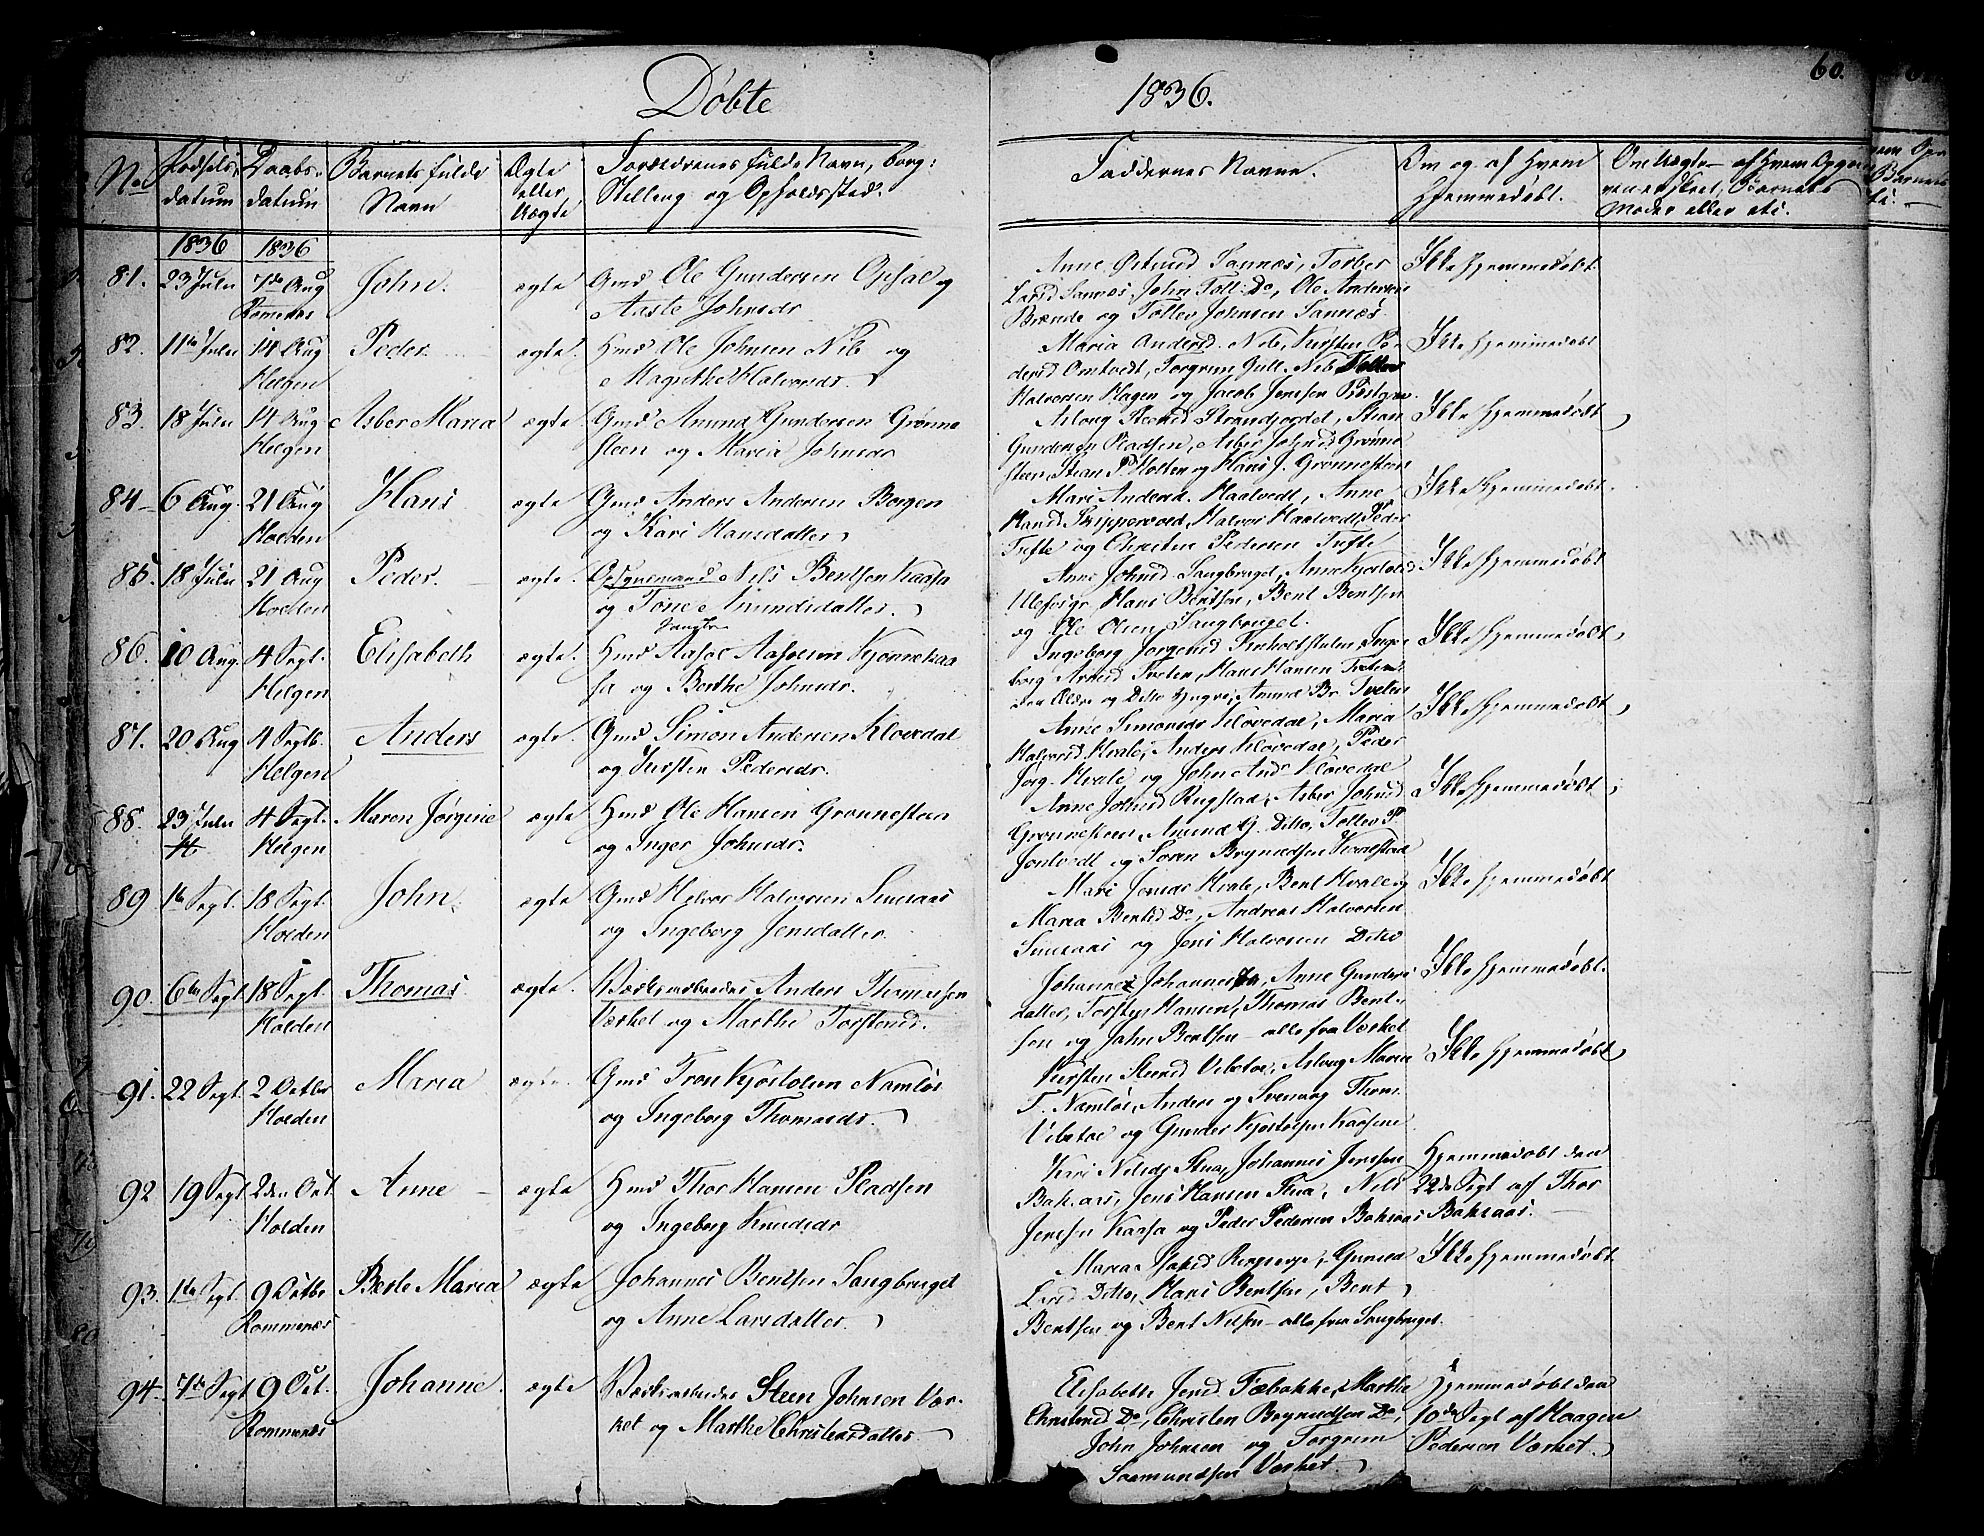 Døbte 1836.
60.
No. Fødsels Datum Daabs Datum Barnets fulde Navn Ægte eller Uægte Forældrenes fulde Navn, Borg: Stilling og Opholdssted. Faddernes Navne. Om og af Hvem Hjemmedøbt.
1836 1836
81. 23 Julii 7de Aug John ægte Gmd Ole Gundersen Opsal og
Romenæs Aaste Johnsdr
Anne Sannæs, Torber
Larsd Sannæs, John Toll: Do, Ole Andersen
Brænde og Tollev Johnsen Sannæs
Ikke Hjemmedøbt
82. 11te Julii 14 Aug Peder ægte. Hmd Ole Johnsen Nib og
Helgen Magrethe Halvorsdr.
Maria Andersd. Nib, Kirsten Pe-
dersd Omtvedt, Torgrim Gull. Nib Tollev
Halvorsen Hagen og Jacob Jenssen
Ikke Hjemmedøbt
83. 18 Julii 14 Aug Asber Maria ægte Gmd Amund Gundersen Grønne
Helgen steen og Maria Johnsdr
Asloug Steensd Strandjordet, Steen
Gundersen Pladsen, Asber Johnsd Grønne
steen, Steen P. Holten og Hans J. Grønnesteen
Ikke Hjemmedøbt
84 6 Aug. 21 Aug Hans ægte Gmd Anders Andersen Borgen
Holden og Kari Hansdatter
Mari Andersd. Haatvedt, Anne
Hansd Skippervold, Halvor Haatvedt, Peder
Tufte og Christen Pedersen Tufte
Ikke Hjemmedøbt.
85. 18 Julii 21 Aug Peder. ægte. Opsynsmand Nels Bentsen Kaasa
Holden og Tone Amundsdatter.
Anne Johnsd Saugbruget, Anne
Hans Bentsen, Bent Bentsen
og Ole Olsen Saugbruget.
Ikke Hjemmedøbt
86. 10 Aug. 4 Sept. Elisabeth ægte. Hmd Aasol Aasolsen
Helgen sa og Berthe Johnsdr.
Ingeborg Jørgensd
borg Tveten, Hans Hansen Tveten
den Ældre og Ditto Yngre, Amund Br. Tveten
Ikke Hjemmedøbt
87. 20 Aug 4 Septb. Anders ægte. Gmd Simon Andersen Klovedal
Helgen og Kirsten Pedersdr.
Anne Simonsdr Klovedal, Maria
Halvorsd Hvale, Anders Klovedal, Peder
Jørg. Hvale og John And. Klovedal
Ikke Hjemmedøbt
88. 23 Julii 4 Sept. Maren Jørgine ægte Hmd Ole Hansen Grønnesteen
Helgen og Inger Johnsdr.
Anne Johnsd Rugstad, Asber Johnsd
Grønnesteen, Amund G. Ditto, Tollev P.
Jontvedt og Søren Brynildsen
Ikke Hjemmedøbt
89 1te Sept. 18 Sept. John. ægte Gmd Halvor Halvorsen
Holden og Ingeborg Jensdatter
Mari Jensdr Hvale, Bent Hvale og
Maria Bentsd Do, Andreas Halvorsen
og Jens Halvorsen Ditto
Ikke Hjemmedøbt
90. 6te Sept 18 Sept. Thomas ægte. Værksarbeider Anders Thomassen
Holden Værket og Marthe Torstensd.
Johannes Johannessen, Anne Gunders
datter, Torsten Hansen, Thomas Bent-
sen og John Bentsen - alle fra Værket
Ikke Hjemmedøbt.
91. 22 Sept. 2 Octbr Maria ægte. Gmd Tron Kjøstolsen Namløs
Holden og Ingeborg Thomasdr.
Kirsten Steensd Vibetoe, Asloug Maria
T. Namløs, Anders og Svenung Thom.
Vibetoe og Gunder Kjøstolsen Kaasene
Ikke Hjemmedøbt
92 19 Sept. 2den Oct Anne ægte Hmd Thor Hansen Pladsen
Holden og Ingeborg Knudsdr
Kari Nilsdr Stua, Johannes Jenssen
Baksaas, Jens Hansen Stua, Nils
Jenssen Kaasa og Peder Pedersen Baksaas
Hjemmedøbt den
22de Sept af Thor
Baksaas.
93. 1te Sept. 9 Octbr Berte Maria ægte Johannes Bentsen Saugbruget
Rommenæs og Anne Larsdatter.
Maria Gunild
Larsd Ditto, Hans Bentsen, Bent
Bentsen og Bent Nilsen - alle fra Saugbruget.
Ikke Hjemmedøbt
94. 7de Sept 9 Oct. Johanne. ægte Værksarbeider Steen Johnsen Vær-
Rommenæs ket og Marthe Christensdatter
Elisabeth Jensd Marthe
Christensd Do, Christen Brynildsen Do,
John Johnsen og Torgrim
Saamundsen Værket.
Hjemmedøbt den
10de Sept af Haagen
Pedersen Værket.